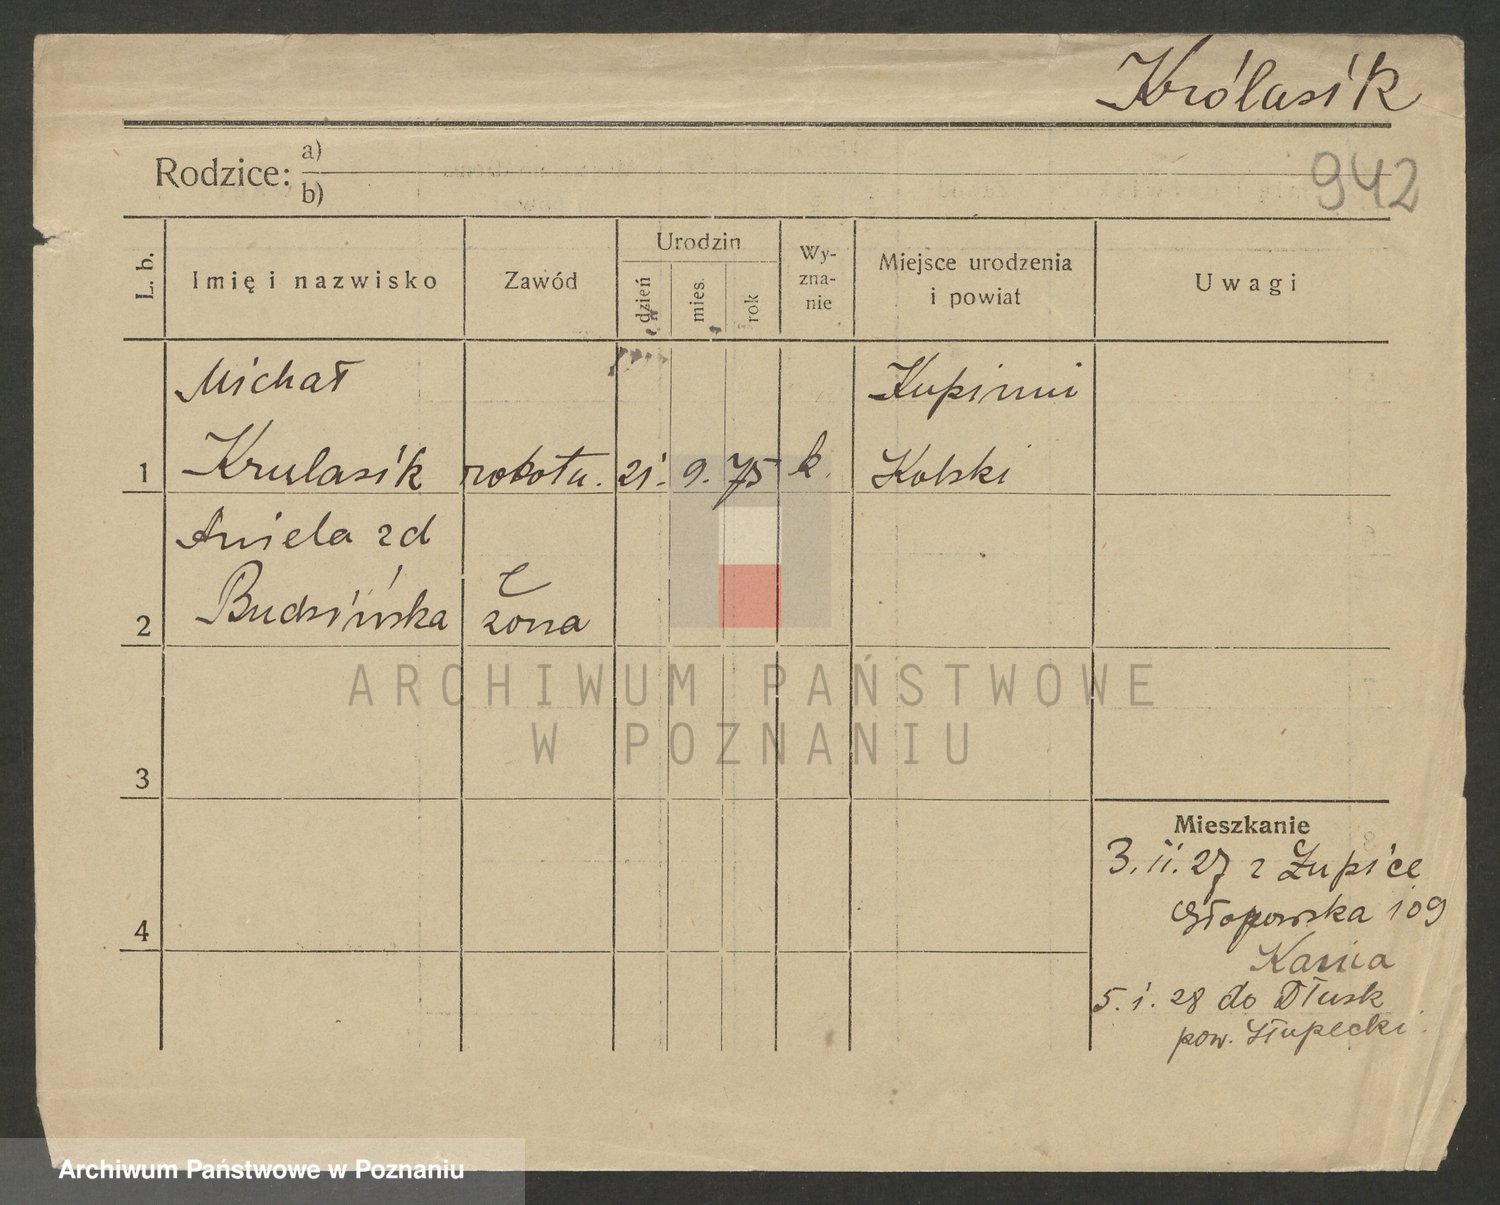 Królasik
942
Rodzice: a)
b)
L. b. Imię i nazwisko Zawód Urodzin dzień mies. rok Wy-zna-nie Miejsce urodzenia i powiat Uwagi
Michał Kupinin
1 Krulasik robotn. 21. 9. 75 k. Kolski
Aniela zd
2 Budzińska żona
3
4
Mieszkanie
3. II. 27 z
109
5. I. 28 do Dłusk
pow. Słupecki
ARCHIWUM PAŃSTWOWE
W POZNANIU
Archiwum Państwowe w Poznaniu